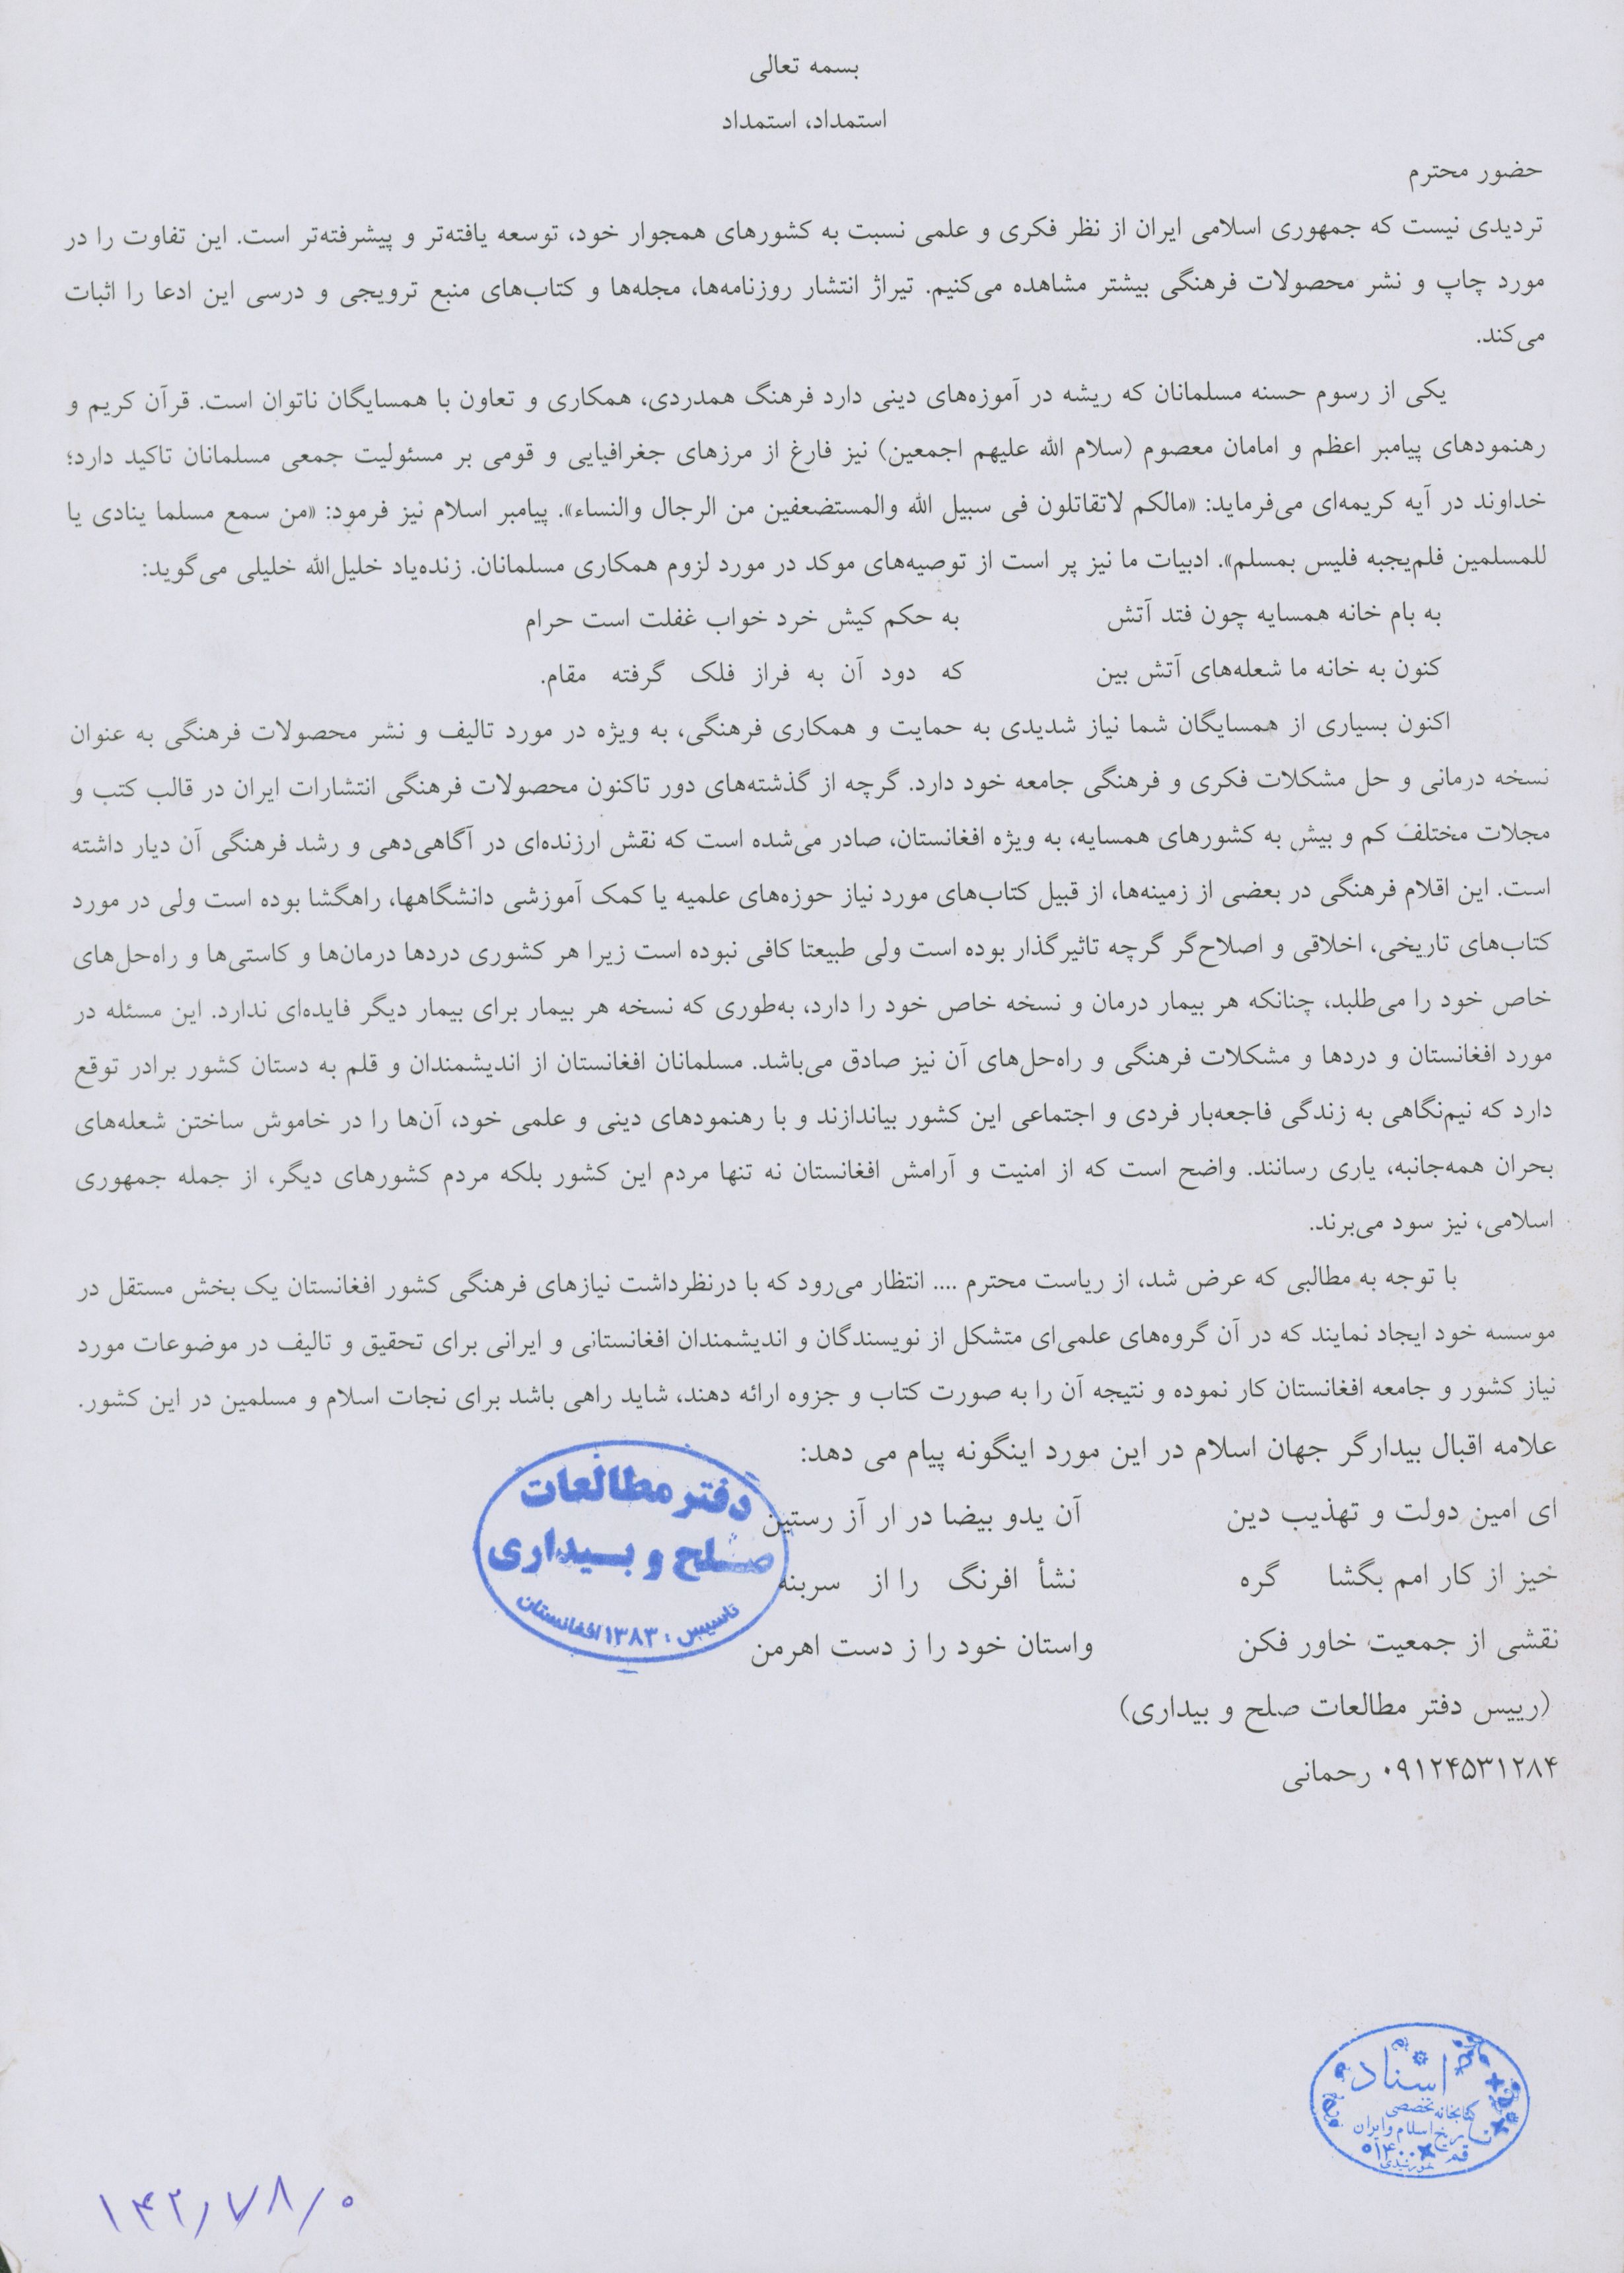 بسمه تعالی
استمداد، استمداد
حضور محترم
تردیدی نیست که جمهوری اسلامی ایران از نظر فکری و علمی نسبت به کشورهای همجوار خود، توسعه یافته‌تر و پیشرفته‌تر است. این تفاوت را در
مورد چاپ و نشر محصولات فرهنگی بیشتر مشاهده می‌کنیم. تیراژ انتشار روزنامه‌ها، مجله‌ها و کتاب‌های منبع ترویجی و درسی این ادعا را اثبات
می‌کند.
یکی از رسوم حسنه مسلمانان که ریشه در آموزه‌های دینی دارد فرهنگ همدردی، همکاری و تعاون با همسایگان ناتوان است. قرآن کریم و
رهنمودهای پیامبر اعظم و امامان معصوم (سلام الله علیهم اجمعین) نیز فارغ از مرزهای جغرافیایی و قومی بر مسئولیت جمعی مسلمانان تاکید دارد؛
خداوند در آیه کریمه‌ای می‌فرماید: «مالکم لاتقاتلون فی سبیل الله والمستضعفین من الرجال والنساء». پیامبر اسلام نیز فرمود: «من سمع مسلما ینادی یا
للمسلمین فلم‌یجبه فلیس بمسلم». ادبیات ما نیز پر است از توصیه‌های موکد در مورد لزوم همکاری مسلمانان. زنده‌یاد خلیل‌الله خلیلی می‌گوید:
به بام خانه همسایه چون فتد آتش به حکم کیش خرد خواب غفلت است حرام
کنون به خانه ما شعله‌های آتش بین که دود آن به فراز فلک گرفته مقام.
اکنون بسیاری از همسایگان شما نیاز شدیدی به حمایت و همکاری فرهنگی، به ویژه در مورد تالیف و نشر محصولات فرهنگی به عنوان
نسخه درمانی و حل مشکلات فکری و فرهنگی جامعه خود دارد. گرچه از گذشته‌های دور تاکنون محصولات فرهنگی انتشارات ایران در قالب کتب و
مجلات مختلف کم و بیش به کشورهای همسایه، به ویژه افغانستان، صادر می‌شده است که نقش ارزنده‌ای در آگاهی‌دهی و رشد فرهنگی آن دیار داشته
است. این اقلام فرهنگی در بعضی از زمینه‌ها، از قبیل کتاب‌های مورد نیاز حوزه‌های علمیه یا کمک آموزشی دانشگاهها، راهگشا بوده است ولی در مورد
کتاب‌های تاریخی، اخلاقی و اصلاح‌گر گرچه تاثیرگذار بوده است ولی طبیعتا کافی نبوده است زیرا هر کشوری دردها درمان‌ها و کاستی‌ها و راه‌حل‌های
خاص خود را می‌طلبد، چنانکه هر بیمار درمان و نسخه خاص خود را دارد، به‌طوری که نسخه هر بیمار برای بیمار دیگر فایده‌ای ندارد. این مسئله در
مورد افغانستان و دردها و مشکلات فرهنگی و راه‌حل‌های آن نیز صادق می‌باشد. مسلمانان افغانستان از اندیشمندان و قلم به دستان کشور برادر توقع
دارد که نیم‌نگاهی به زندگی فاجعه‌بار فردی و اجتماعی این کشور بیاندازند و با رهنمودهای دینی و علمی خود، آن‌ها را در خاموش ساختن شعله‌های
بحران همه‌جانبه، یاری رسانند. واضح است که از امنیت و آرامش افغانستان نه تنها مردم این کشور بلکه مردم کشورهای دیگر، از جمله جمهوری
اسلامی، نیز سود می‌برند.
با توجه به مطالبی که عرض شد، از ریاست محترم .... انتظار می‌رود که با درنظرداشت نیازهای فرهنگی کشور افغانستان یک بخش مستقل در
موسسه خود ایجاد نمایند که در آن گروه‌های علمی‌ای متشکل از نویسندگان و اندیشمندان افغانستانی و ایرانی برای تحقیق و تالیف در موضوعات مورد
نیاز کشور و جامعه افغانستان کار نموده و نتیجه آن را به صورت کتاب و جزوه ارائه دهند، شاید راهی باشد برای نجات اسلام و مسلمین در این کشور.
علامه اقبال بیدارگر جهان اسلام در این مورد اینگونه پیام می دهد:
ای امین دولت و تهذیب دین آن یدو بیضا در ار آز رستین
خیز از کار امم بگشا گره نشأ افرنگ را از سربنه
نقشی از جمعیت خاور فکن واستان خود را ز دست اهرمن
(رییس دفتر مطالعات صلح و بیداری)
۰۹۱۲۴۵۳۱۲۸۴ رحمانی
دفتر مطالعات
صلح و بیداری
تاسیس : ۱۳۸۳ افغانستان
اسناد
کتابخانه تخصصی
تاریخ اسلام و ایران
قم
۱۴۰۰
خورشیدی
۱۴۲/۷۸/۰